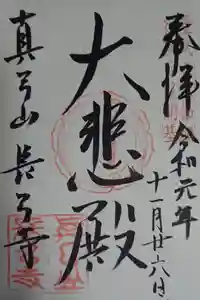 奉拝
令和元年
十一月廿六日
大悲殿
真弓山
長弓寺